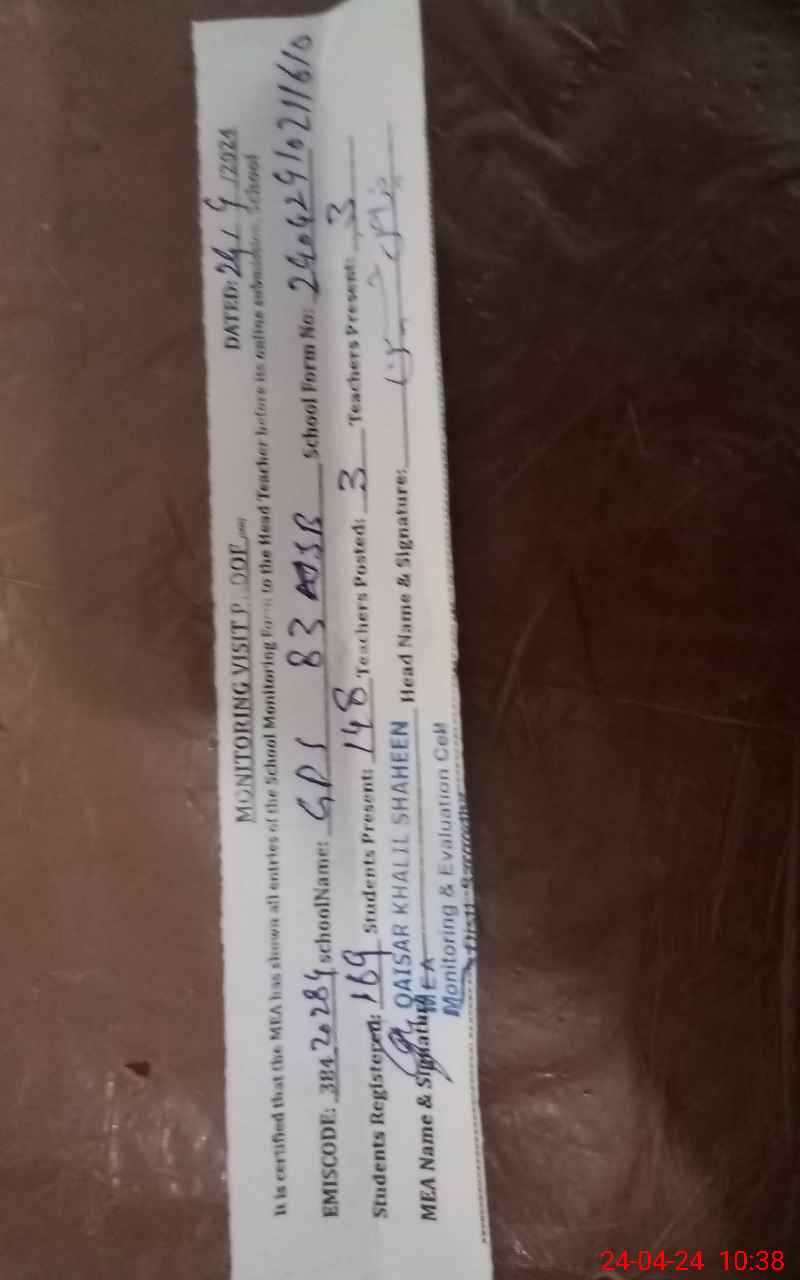 MONITORING VISIT P OOF
DATED: 24 / 4 /2024
It is certified that the MEA has shown all entries of the School Monitoring Form to the Head Teacher before its online submission. School
EMISCODE: 38420284 schoolName: GPS 83 SB School Form No:
Students Registered: 169 Students Present: 148 Teachers Posted: 3 Teachers Present: 3
MEA Name & Signature Head Name & Signature:
QAISAR KHALIL SHAHEEN
MEA
Monitoring & Evaluation Cell
Distt: Sargodha
24-04-24 10:38